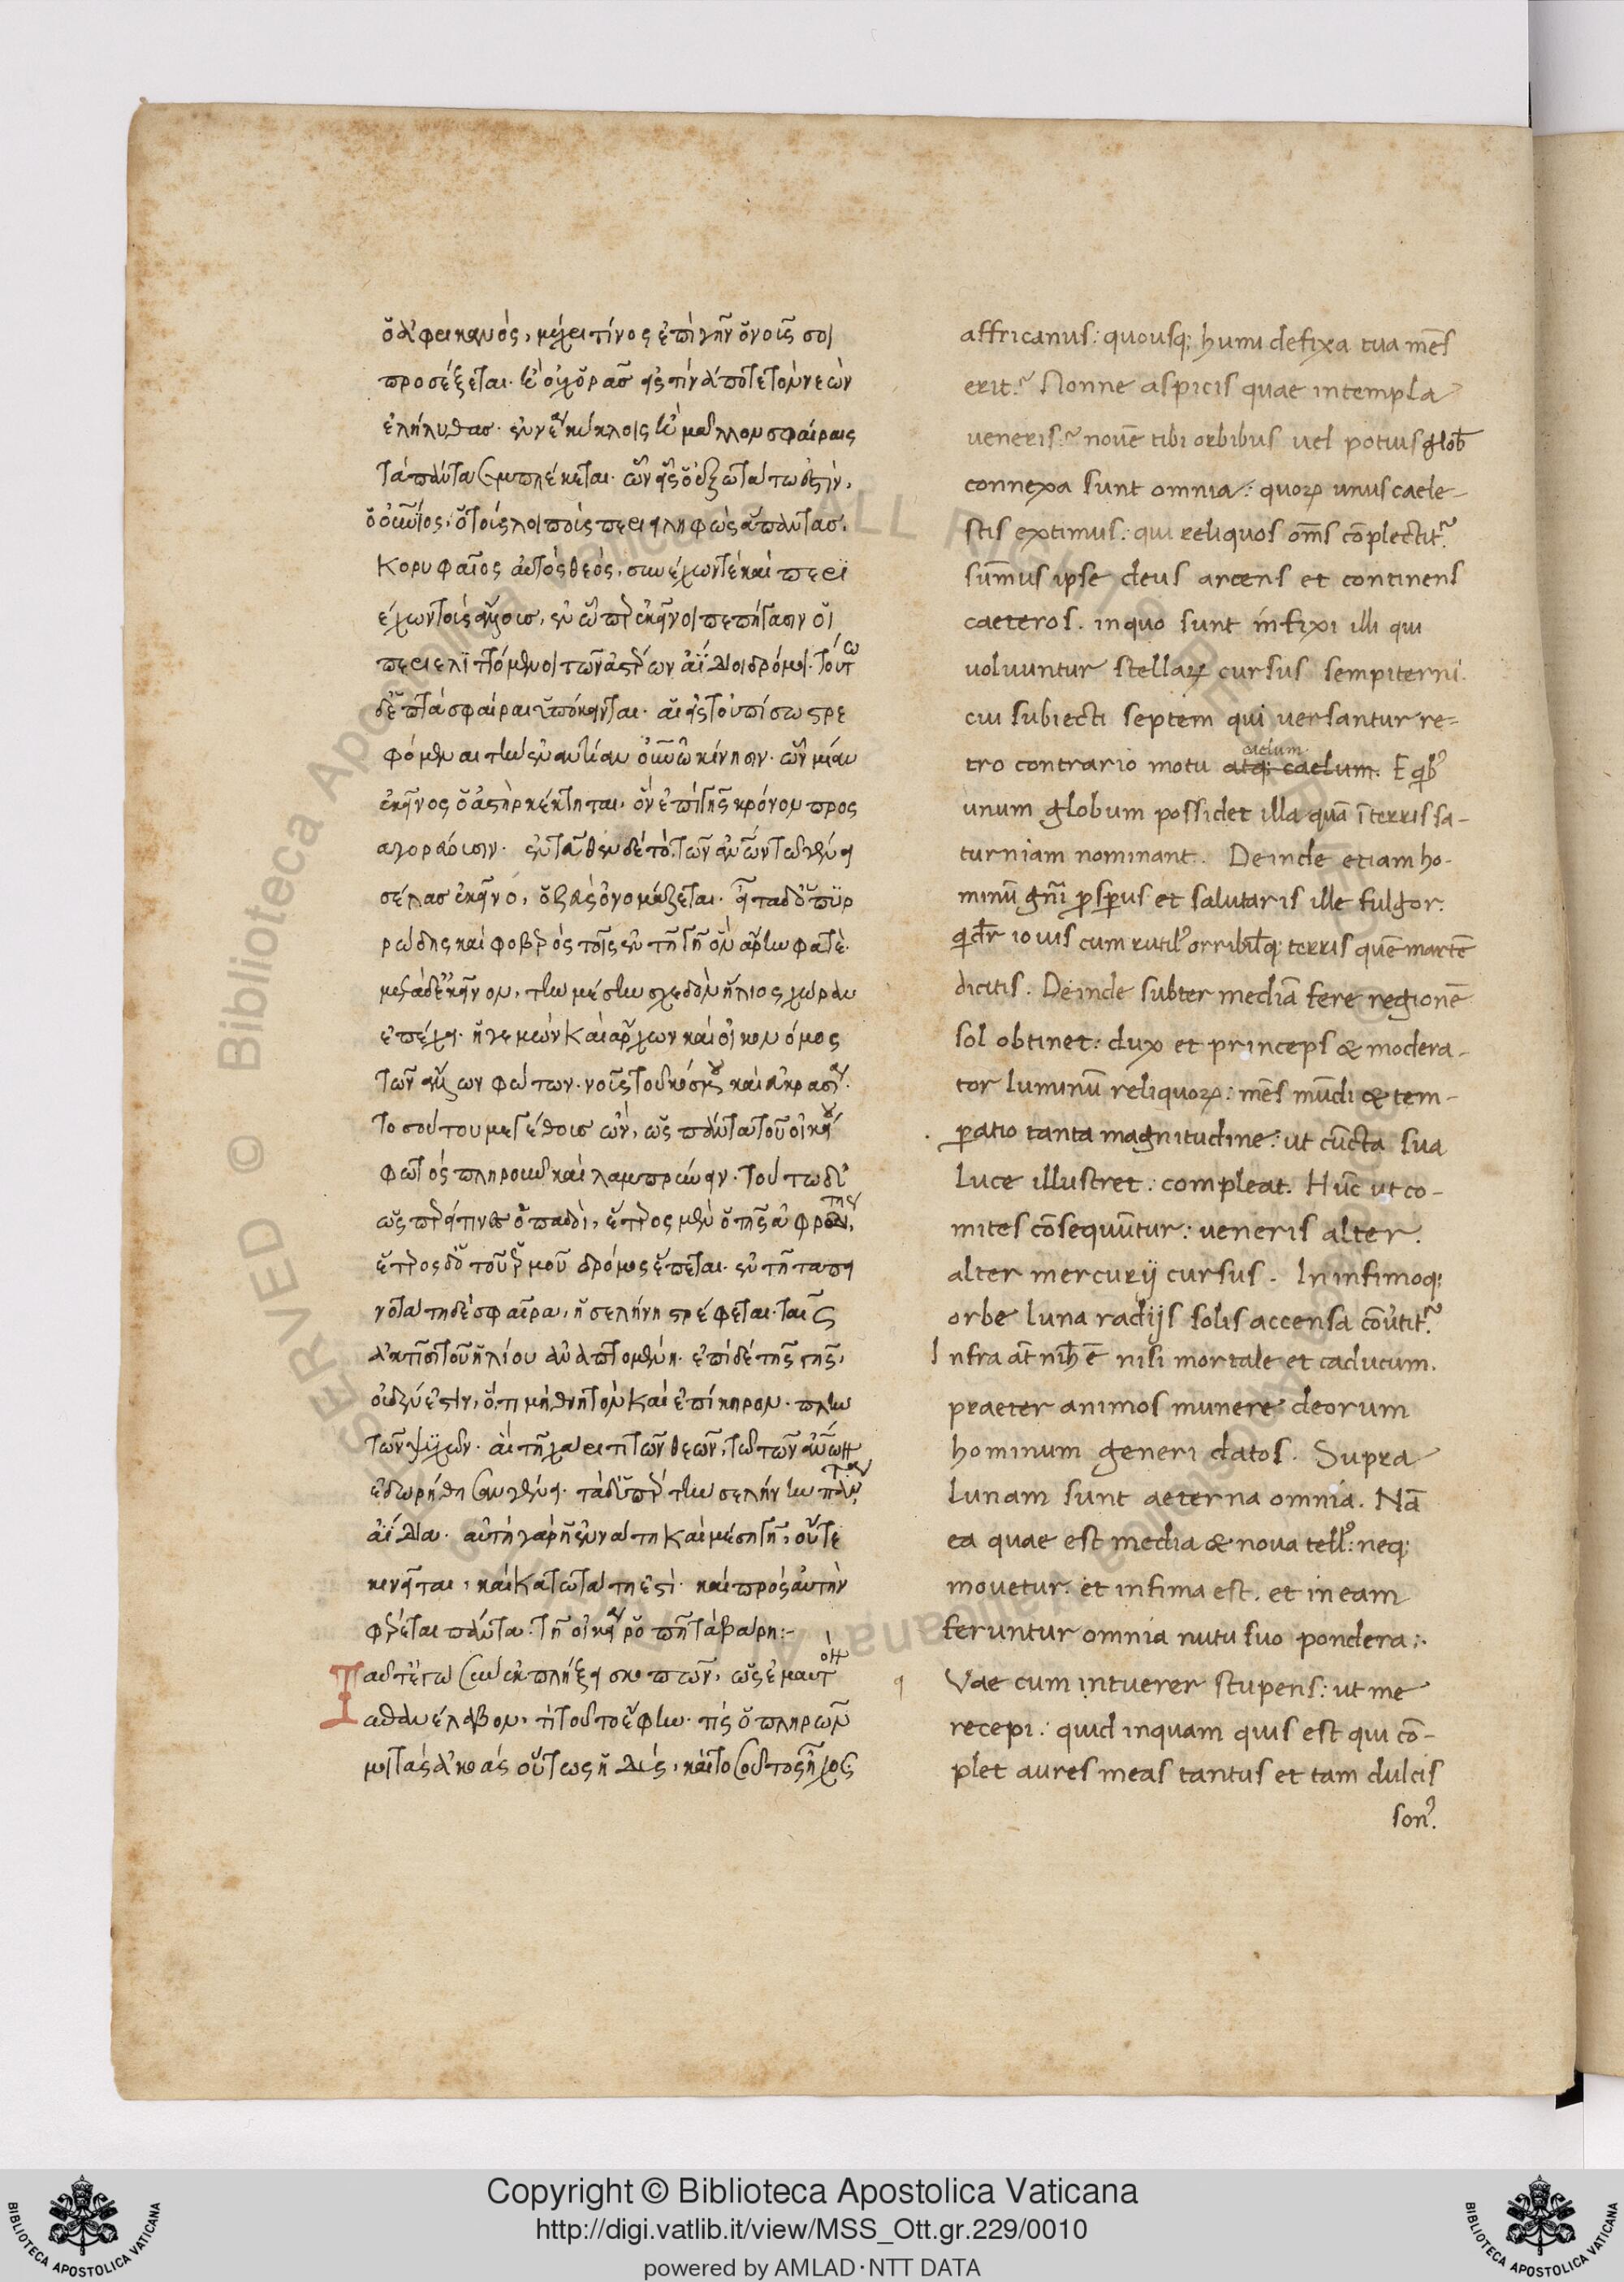 ὁ ἀφρικανός, μέχρι τίνος ἐπὶ γῆν ὁ νοῦς σοι
προσέξεται. ἢ οὐχ ὁρᾶς εἰς τίνα ποτὲ τὸν νεὼν
ἐλήλυθας. ἐννέα κύκλοις ἢ μᾶλλον σφαίραις
τὰ πάντα συμπλέκεται. ὧν εἷς ὁ ἐξωτάτω ἐστὶν,
ὁ οὐνιος, ὁ τοὺς λοιποὺς περιειληφὼς ἅπαντας.
κορυφαῖος αὐτὸς θεός, συνέχων τὲ καὶ περι
έχων τοὺς ἄλλους, ἐν ᾧπερ ἐκεῖνοι πεπήγασιν οἱ
περιελιττόμενοι τῶν ἄστρων ἀΐδιοι δρόμοι. τούτω
δ' ἑπτὰ σφαῖραι ὑπόκεινται. αἳ εἰς τοὐπίσω στρε
φόμεναι τὴν ἐναντίαν οὐνω κίνησιν. ὧν μίαν
ἐκεῖνος ὁ ἀστὴρ κέκτηται, ὃν ἐπὶ γῆς κρόνον προσ
αγοράουσιν. ἐνταῦθεν δὲ τὸ τῶν ἀνων τῷ γένει
σέλας ἐκεῖνο, ὃ ζεὺς ὀνομάζεται. εἶτα δ' ὁ πυρ
ρώδης καὶ φοβερὸς τοῖς ἐν τῇ γῇ ὃν ἄρην φατέ.
μετὰ δ' ἐκεῖνον, τὴν μέσην σχεδὸν ἥλιος χώραν
ἐπέχει. ἡγεμὼν καὶ ἄρχων καὶ οἰκονόμος
τῶν ἄλλων φώτων. νοῦς τοῦ κόσμου καὶ ἀκρασι.
τοσούτου μεγέθους ὢν, ὡς πάντα τοῦ οἰκείου
φωτὸς πληροῦν καὶ λαμπρύνειν. τούτω δ'
ὥσπερ τινες ὀπαδοὶ, ἕτερος μὲν ὁ τῆς ἀφροδίτης,
ἕτερος δ' ὁ τοῦ ἑρμοῦ δρόμος ἕπεται. ἐν τῇ ταπει
νοτάτη δὲ σφαῖρα, ἡ σελήνη στρέφεται. ταῖς
ἀκτῖσι τοῦ ἡλίου ἀναπτομένη. ἐπὶ δὲ τῆς γῆς,
οὐδέν ἐστιν, ὅτι μὴ θνητὸν καὶ ἐπίκηρον. πλὴν
τῶν ψυχῶν. αἳ τῇ χάριτι τῶν θεῶν, τῷ τῶν ἀνων
ἐδωρήθησαν γένει. τὰ δ' ὑπὲρ τὴν σελήνην πάντα
ἀΐδια. αὕτη γὰρ ἡ ἐννάτη καὶ μέση γῆ, οὔτε
κινεῖται, καὶ κατωτάτη ἐστὶ. καὶ πρὸς αὐτὴν
φέρεται πάντα τῇ οἰκείᾳ ῥοπῇ τὰ βάρη:-
Ταῦτ' ἔγωγε σὺν ἐκπλήξει σκοπῶν, ὡς ἐμαυτὸν
αὖθὰν ἔλαβον, τί τοῦτο ἔφην. τίς ὁ πληρῶν
μοι τὰς ἀκοὰς οὕτως ἡδὺς, καὶ τοσοῦτος ἦχος
affricanus: quousq; humi defixa tua mēs
erit? Nonne aspicis quae in templa
veneris? novē tibi orbibus vel potius glob
connexa sunt omnia: quorū unus caele-
stis extimus: qui reliquos omīs cōplectit.
sūmus ipse deus arcens et continens
caeteros. in quo sunt infixi illi qui
voluuntur stellarū cursus sempiterni.
cui subiecti septem qui versantur re=
tro contrario motu atq; caelum. caelum. E qib9
unum globum possidet illa quā ī terris sa-
turniam nominant. Deinde etiam ho-
minū gnī ꝓsꝑus et salutaris ille fulgor.
q dr̄ iovis cum rutil9 orribilq; terris quē martē
dicitis. Deinde subter mediā fere regionē
sol obtinet: dux et princeps & modera-
tor luminū reliquorū: mēs mūdi & tem-
ꝑatio tanta magnitudine: ut cūcta sua
luce illustret: compleat. Hūc ut co-
mites cōsequūtur: veneris alter.
alter mercurij cursus. In infimoq;
orbe luna radijs solis accensa cōvertit.
Infra āt nih̄ ē nisi mortale et caducum.
praeter animos munere deorum
hominum generi datos. Supra
lunam sunt aeterna omnia. Nā
ea quae est media & nova tell9: neq;
movetur. et infima est. et in eam
feruntur omnia nutu suo pondera:.
q Vae cum intuerer stupens: ut me
recepi: quid inquam quis est qui cō-
plet aures meas tantus et tam dulcis
son9.
Biblioteca Apostolica Vaticana
Copyright © Biblioteca Apostolica Vaticana
http://digi.vatlib.it/view/MSS_Ott.gr.229/0010
powered by AMLAD·NTT DATA
BIBLIOTECA APOSTOLICA VATICANA
BIBLIOTECA APOSTOLICA VATICANA